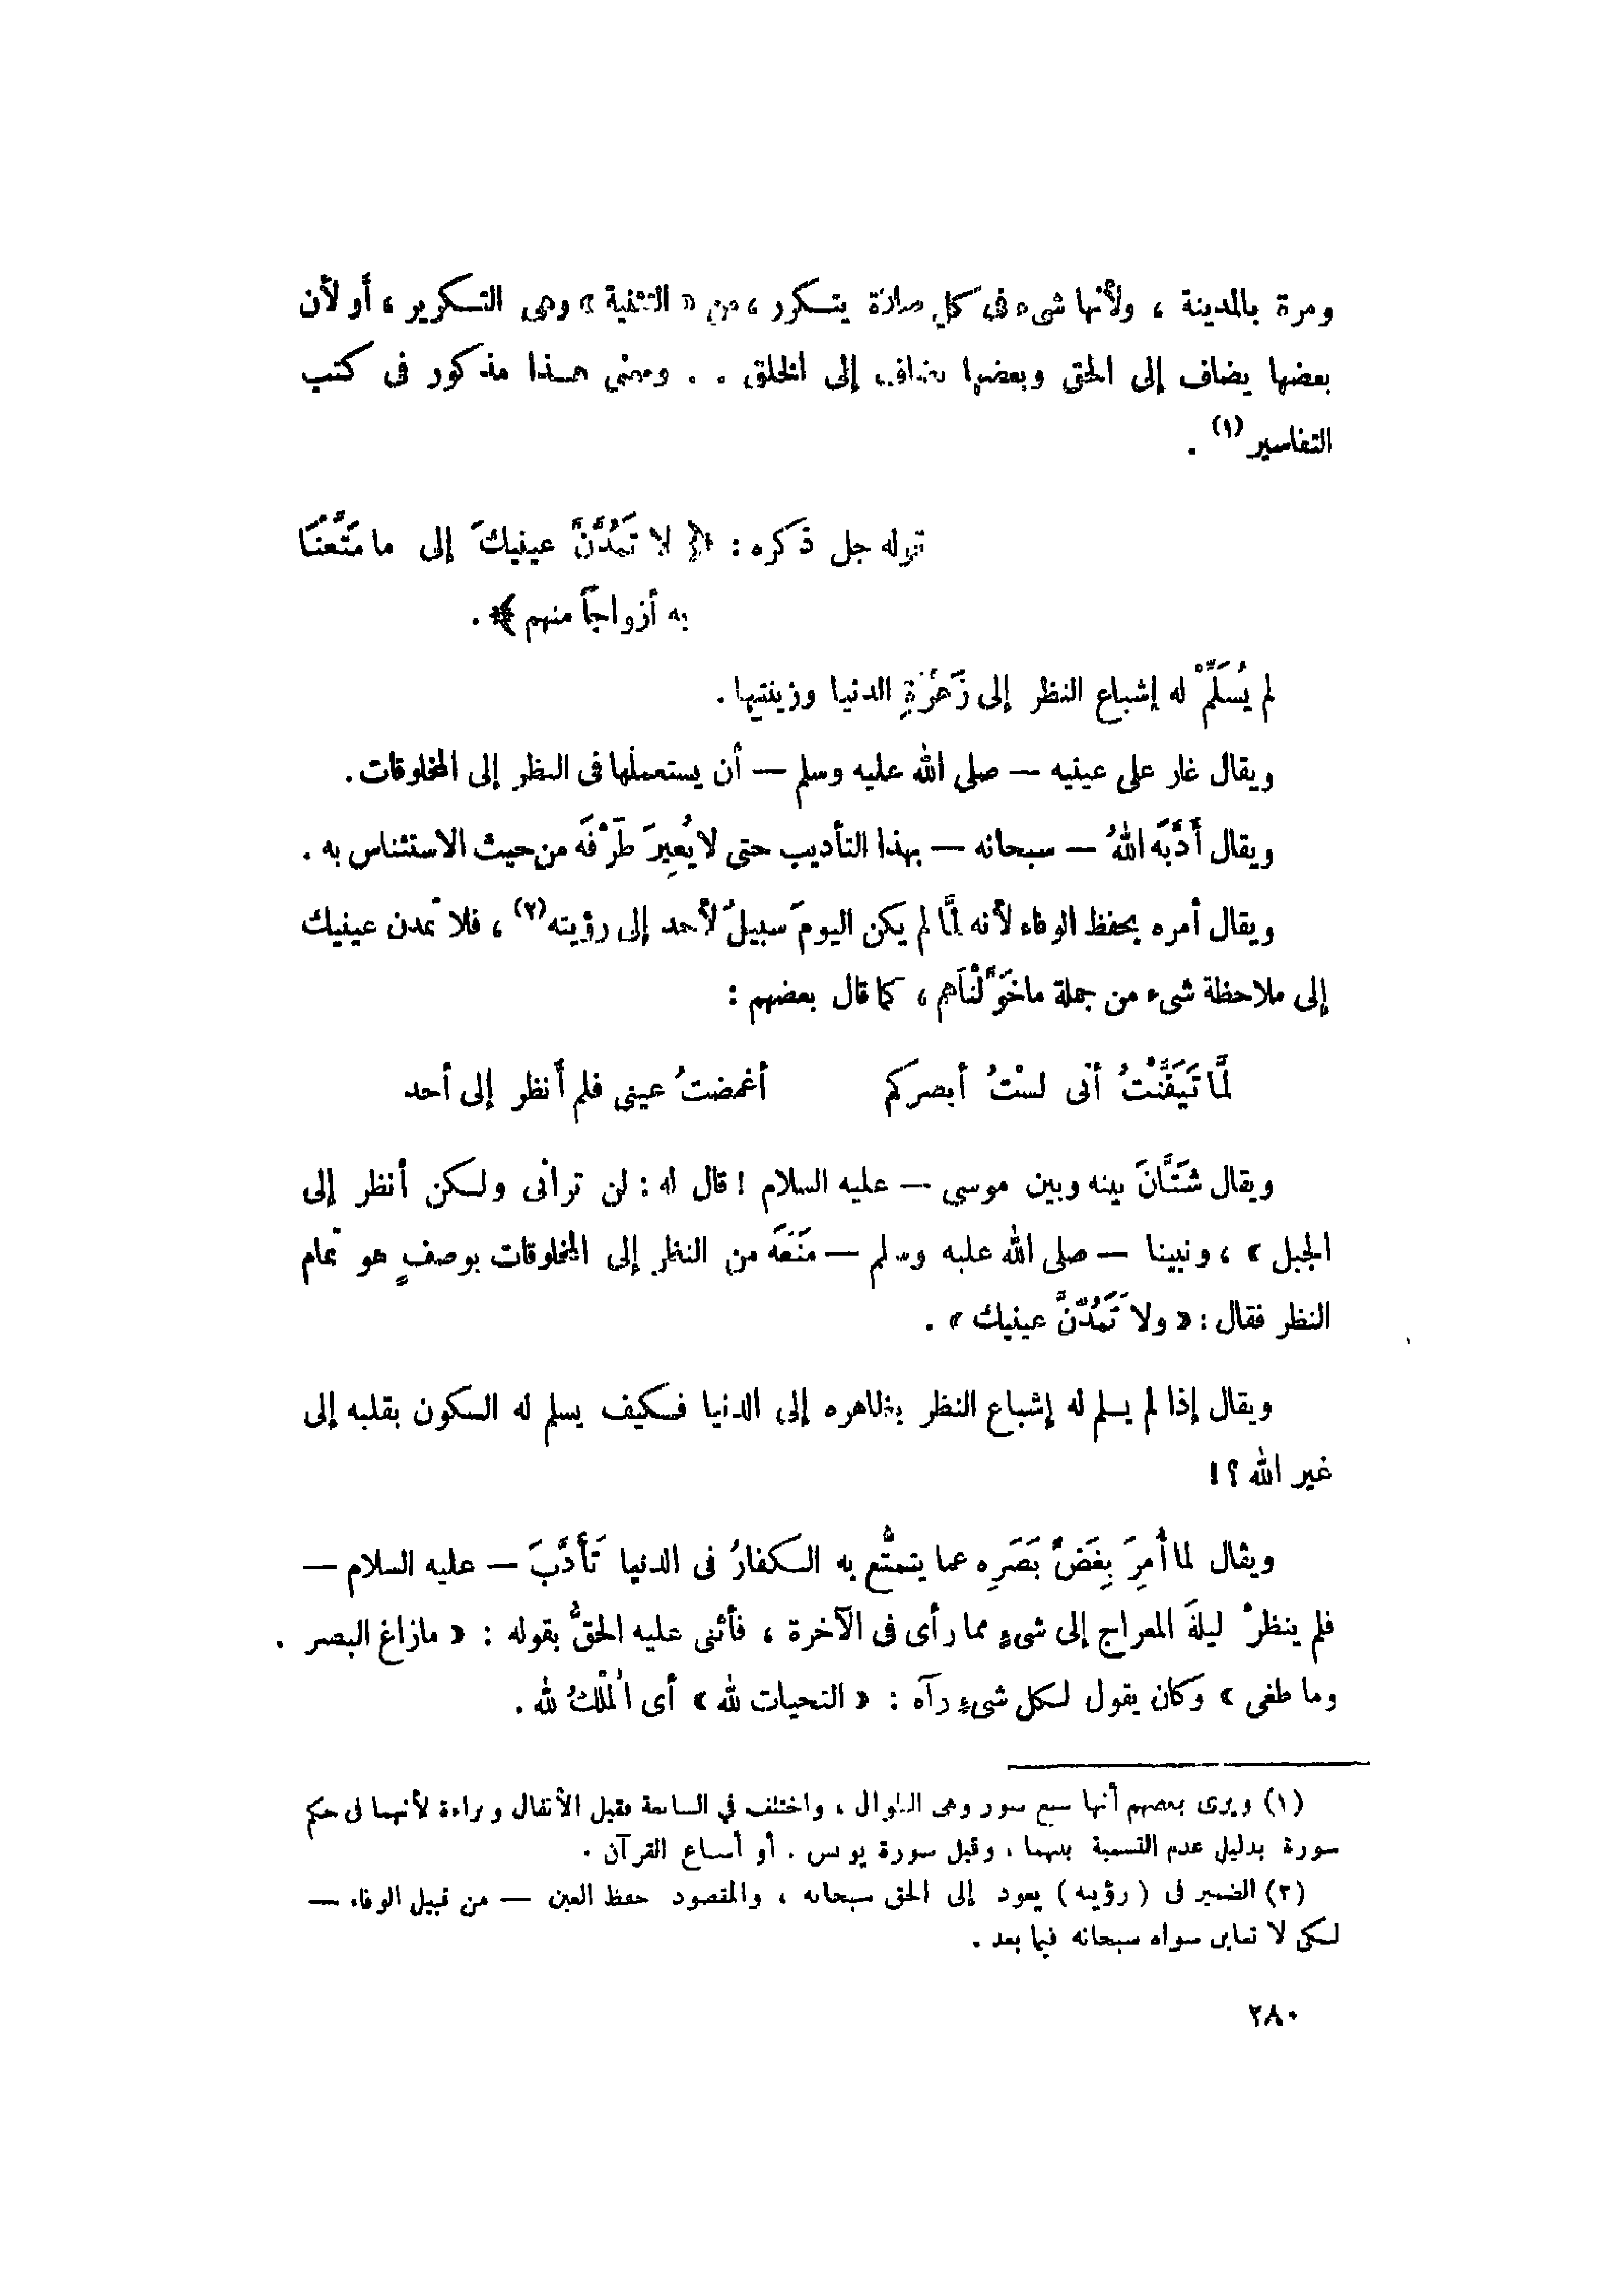 ومرة بالمدينة ، ولأنها شىء فى كل صلاة يتكرر ، من « التثنية » وهى التكرير ، أو لأن
بعضها يضاف إلى الحق وبعضها يضاف إلى الخلق . . ومعنى هذا مذكور فى كتب
التفاسير (١) .
قوله جل ذكره : ﴿ لا تَمُدَّنَّ عينيكَ إلى ما مَتَّعْنَا
به أزواجاً منهم ﴾ .
لم يُسَلَّمْ له إشباع النظر إلى زَهْرَةِ الدنيا وزينتها .
ويقال غار على عينيه — صلى الله عليه وسلم — أن يستعملها فى النظر إلى المخلوقات .
ويقال أَدَّبَه اللهُ — سبحانه — بهذا التأديب حتى لا يُعِيرَ طَرْفَه من حيث الاستئناس به .
ويقال أمره بحفظ الوفاء لأنه لمَّا لم يكن اليومَ سبيلٌ لأحد إلى رؤيته (٢) ، فلا تمدن عينيك
إلى ملاحظة شىء من جملة ما خَوَّلْنَاهم ، كما قال بعضهم :
لمَّا تَيَقَّنْتُ أنى لستُ أبصركم أغمضتُ عينى فلم أنظر إلى أحد
ويقال شَتَّانَ بينه وبين موسى — عليه السلام ! قال له : لن ترانى ولكن أنظر إلى
الجبل » ، ونبينا — صلى الله عليه وسلم — مَنَعَه من النظر إلى المخلوقات بوصفٍ هو تمام
النظر فقال : « ولا تَمُدَّنَّ عينيك » .
ويقال إذا لم يسلم له إشباع النظر بظاهره إلى الدنيا فكيف يسلم له السكون بقلبه إلى
غير الله ؟ !
ويقال لما أُمِرَ بِغَضِّ بَصَرِه عما يتمتَّع به الكفارُ فى الدنيا تَأَدَّبَ — عليه السلام —
فلم ينظرْ ليلةَ المعراج إلى شىءٍ مما رأى فى الآخرة ، فأثنى عليه الحقُّ بقوله : « مازاغ البصر .
وما طغى » وكان يقول لكل شىءٍ رآه : « التحيات لله » أى المُلْكُ لله .
(١) ويرى بعضهم أنها سبع سور وهى الطوال ، واختلف في السابعة فقيل الأنفال وبراءة لأنهما فى حكم
سورة بدليل عدم التسمية بينهما ، وقيل سورة يونس . أو أسباع القرآن .
(٢) الضمير فى ( رؤيته ) يعود إلى الحق سبحانه ، والمقصود حفظ العين — من قبيل الوفاء —
لكى لا تعاين سواه سبحانه فيما بعد .
٢٨٠